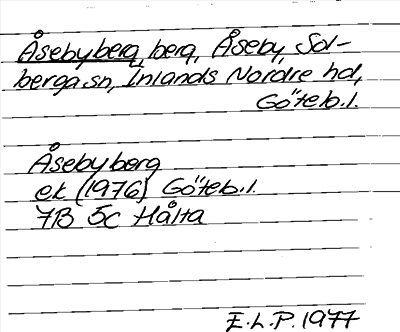 Åsebyberg, berg, Åseby, Sol-
berga sn, Inlands Nordre hd,
Göteb.l.
Åsebyberg
ek (1976) Göteb.l.
7B 5c Hålta
E.L.P. 1977